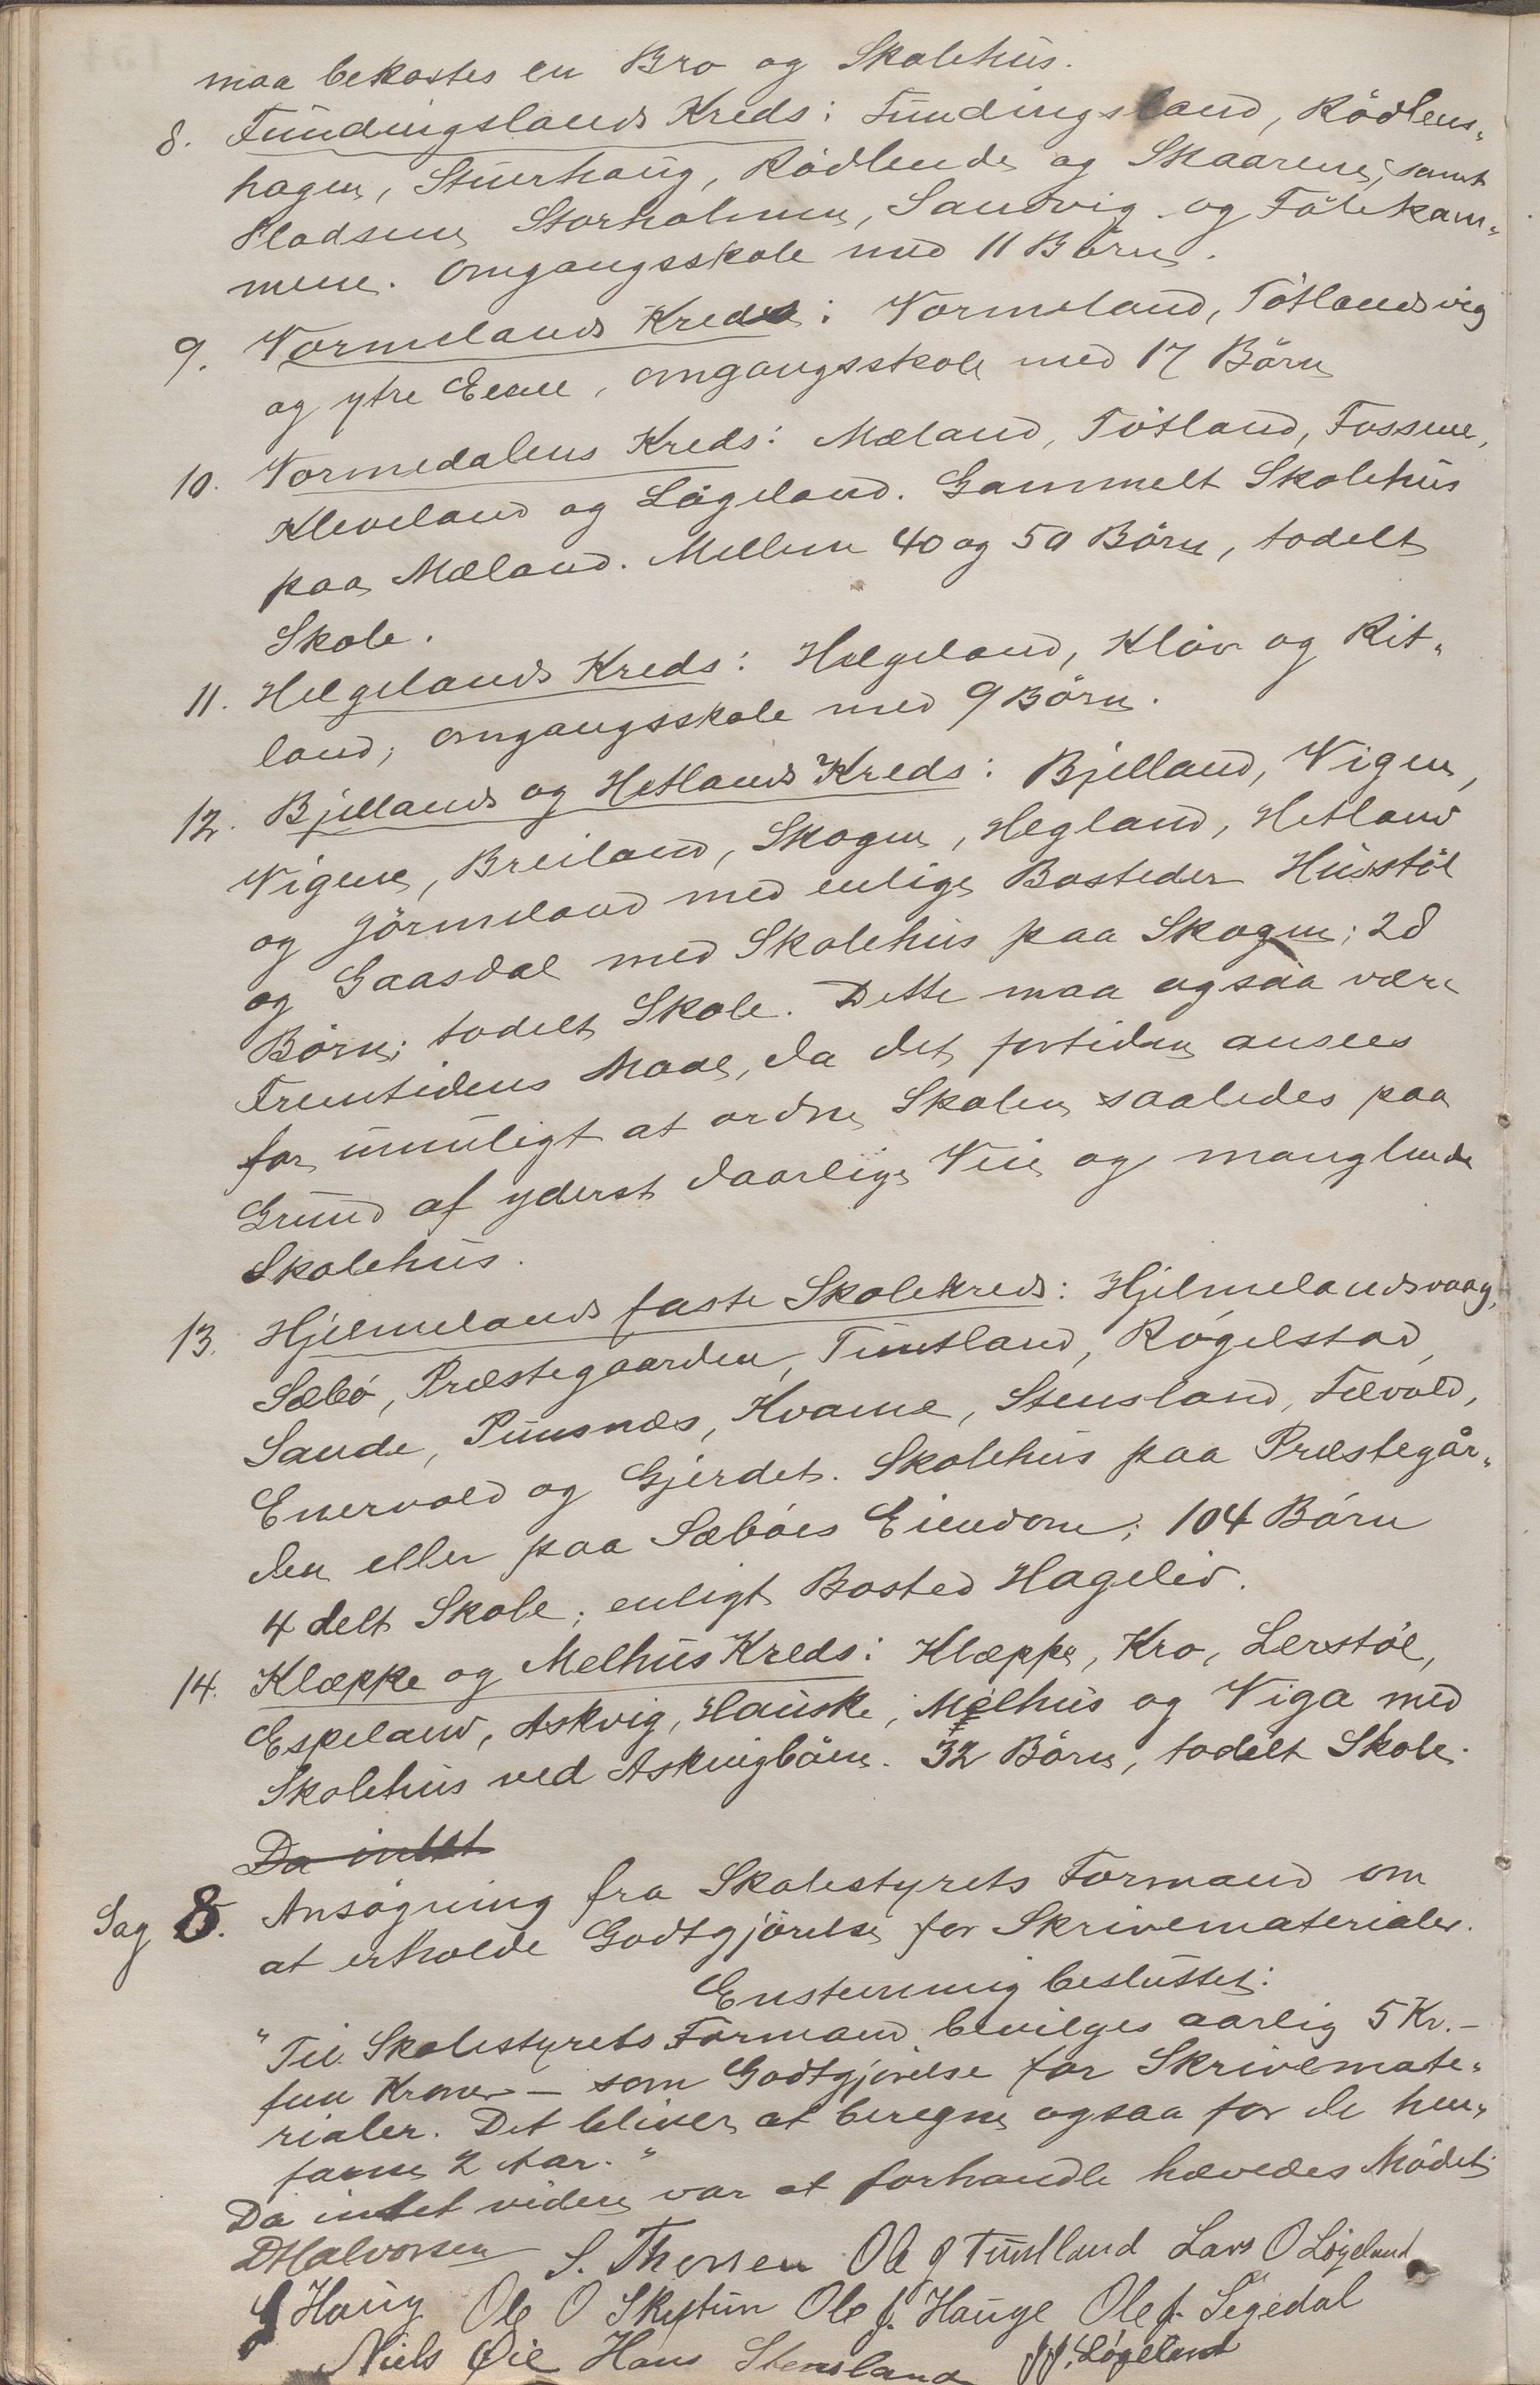 maa bekostes en Bro og Skolehus.
8. Fundingslands Kreds: Fundingsland, Rödlens-
hagen, Stuerhaug, Rödlende og Skaarene, samt
Pladsene Storholmen, Sandvig og Fölekam-
mene. Omgangsskole med 11 Börn.
9. Vormelands Kreds: Vormeland, Tötlandsvig
og ytre Eene, omgangsskole med 17 Börn
10. Vormedalens Kreds: Mæland, Tötland, Fossene,
Kleveland og Lögeland. Gammelt Skolehus
paa Mæland. Mellem 40 og 50 Börn, todelt
Skole.
11. Helgelands Kreds: Helgeland, Klöv og Rit-
land; omgangsskole med 9 Börn.
12. Bjellands og Hetlands Kreds: Bjelland, Vigen,
Vigene, Breiland, Skogen, Hegland, Hetland
og Jörmeland med enlige Bosteder Husstöl
og Gaasdal med Skolehus paa Skogen; 28
Börn; todelt Skole. Dette maa ogsaa være
Fremtidens Maal, da det fortiden ansees
for umuligt at ordne Skolen saaledes paa
Grund af yderst daarlige Veie og manglende
Skolehus.
13. Hjelmelands faste Skolekreds: Hjelmelandsvaag,
Sæbö, Præstegaarden, Tuntland, Rögelstad,
Sande, Puntsnæs, Kvame, Stensland, Felvold,
Enervold og Gjerdet. Skolehus paa Præstegår-
den eller paa Sæböes Eiendom; 104 Börn
4 delt Skole; enligt Bosted Hagelid.
14. Kleppe og Melhus Kreds: Kleppe, Kro, Lerstöl,
Espeland, Askvig, Hauske, Melhus og Viga med
Skolehus ved Askvigbäen. 32 Börn, todelt Skole.
Da intet
Sag 8. Ansögning fra Skolestyrets Formand om
at erholde Godtgjörelse for Skrivematerialer.
Enstemmig besluttet:
"Til Skolestyrets Formand bevilges aarlig 5 Kr. -
fem Kroner - som Godtgjörelse for Skrivemate-
rialer. Det bliver at beregne ogsaa for de hen-
farne 2 Aar."
Da intet videre var at forhandle hævedes Mödet.
D Halvorsen S. Thorsen Ole J Tuntland Lars O Løgeland
Haug Ole O Skeptun Ole J. Hauge Ole J. Segedal
Niels Øie Hans Stensland J.J. Løgeland